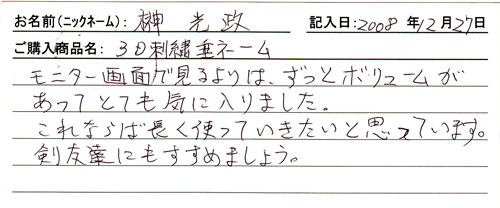 お名前(ニックネーム): 榊 光政 記入日: 2008 年 12月 27日
ご購入商品名: 3D刺繍垂ネーム
モニター画面で見るよりは、ずっとボリュームが
あってとても気に入りました。
これならば長く使っていきたいと思っています。
剣友達にもすすめましょう。